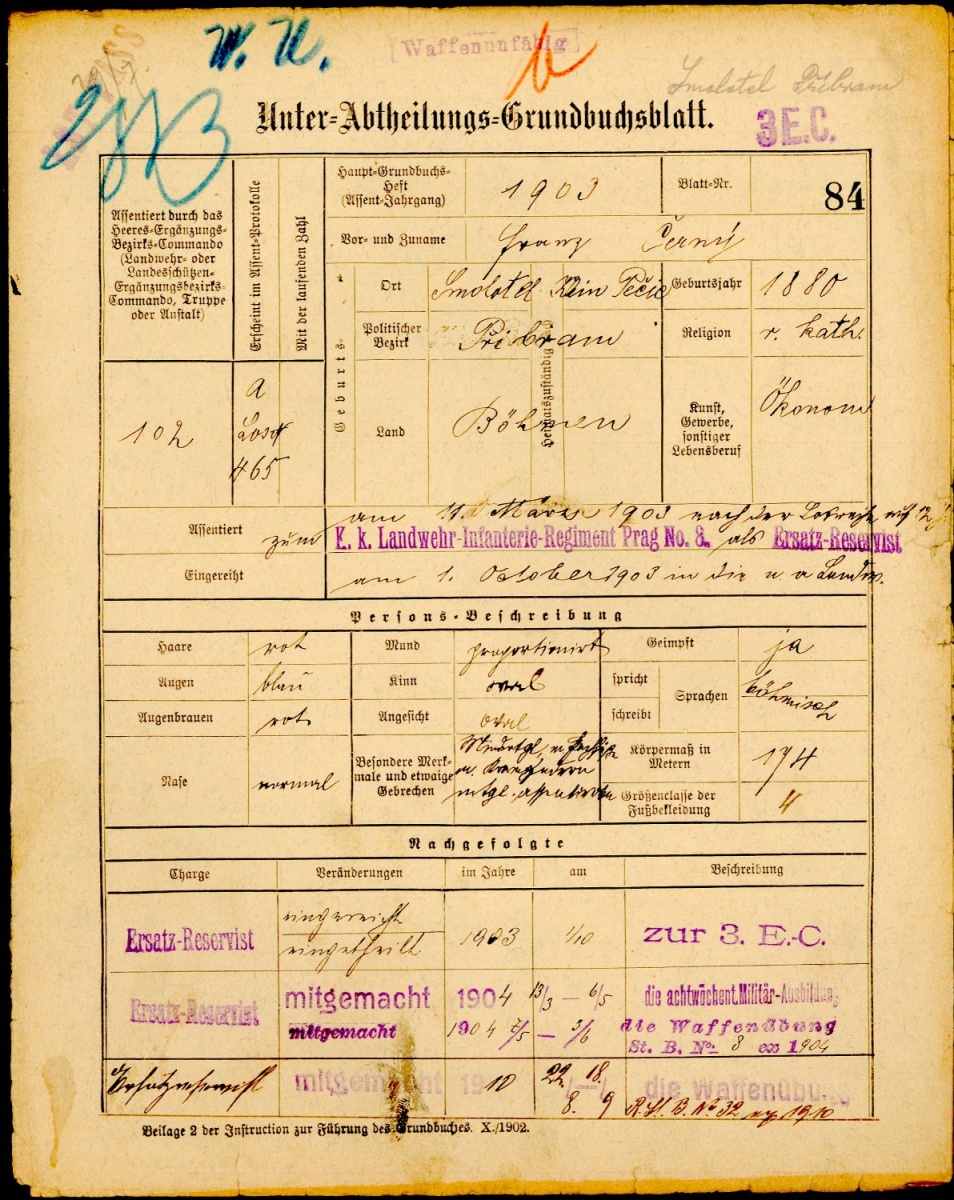 W. U.
Waffenunfähig
b
Smolotel Přibram
Unter-Abtheilungs-Grundbuchsblatt.
3 E.C.
Assentiert durch das
Heeres-Ergänzungs-
Bezirks-Commando
(Landwehr- oder
Landesschützen-
Ergänzungsbezirks-
Commando, Truppe
oder Anstalt)
Erscheint im Assent-Protokolle
Mit der laufenden Zahl
102
a
Losg
465
Haupt-Grundbuchs-
Heft
(Assent-Jahrgang)
1903
Blatt-Nr.
84
Vor- und Zuname
Franz Černý
Geburts-
Ort
Smolotel Klein Pečic
Geburtsjahr
1880
Politischer
Bezirk
Přibram
Religion
r. kath.
Land
Böhmen
Heimatszuständig
Kunst,
Gewerbe,
sonstiger
Lebensberuf
Ökonom
Assentiert
am 11. März 1903 nach der Losreihe auf 12 J.
zum K. k. Landwehr-Infanterie-Regiment Prag No. 8. als Ersatz-Reservist
Eingereiht
am 1. October 1903 in die
Persons-Beschreibung
Haare
rot
Mund
proportionirt
Geimpft
ja
Augen
blau
Kinn
oval
spricht
schreibt
Sprachen
böhmisch
Augenbrauen
rot
Angesicht
oval
Nase
normal
Besondere Merk-
male und etwaige
Gebrechen
Körpermaß in
Metern
174
Größenclasse der
Fußbekleidung
4
Nachgefolgte
Charge
Veränderungen
im Jahre
am
Beschreibung
Ersatz-Reservist
eingereiht
eingetheilt
1903
1/10
zur 3. E.-C.
Ersatz-Reservist
mitgemacht
1904
13/3 — 6/5
die achtwöchent. Militär-Ausbildung
mitgemacht
1904
7/5 — 3/6
die Waffenübung
St. B. No. 8 ex 1904
Ersatzreservist
mitgemacht
1910
22. — 18.
8. 9
die Waffenübung
R. St. B. No 32 ex 1910
Beilage 2 der Instruction zur Führung des Grundbuches. X./1902.